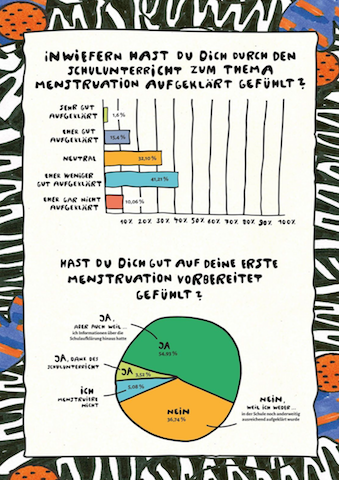 INWIEFERN HAST DU DICH DURCH DEN
SCHULUNTERRICHT ZUM THEMA
MENSTRUATION AUFGEKLÄRT GEFÜHLT?
SEHR GUT
AUFGEKLÄRT
1,6 %
EHER GUT
AUFGEKLÄRT
15,4 %
NEUTRAL
32,10 %
EHER WENIGER
GUT AUFGEKLÄRT
41,21 %
EHER GAR NICHT
AUFGEKLÄRT
10,06 %
10% 20% 30% 40% 50% 60% 70% 80% 90% 100%
HAST DU DICH GUT AUF DEINE ERSTE
MENSTRUATION VORBEREITET
GEFÜHLT?
JA,
ABER AUCH WEIL...
ich Informationen über die
Schulaufklärung hinaus hatte
JA
54,65 %
JA, DANK DES
SCHULUNTERRICHT
JA 3,52 %
ICH
MENSTRUIERE
NICHT
5,08 %
NEIN
36,74 %
NEIN,
WEIL ICH WEDER...
in der Schule noch anderweitig
ausreichend aufgeklärt wurde